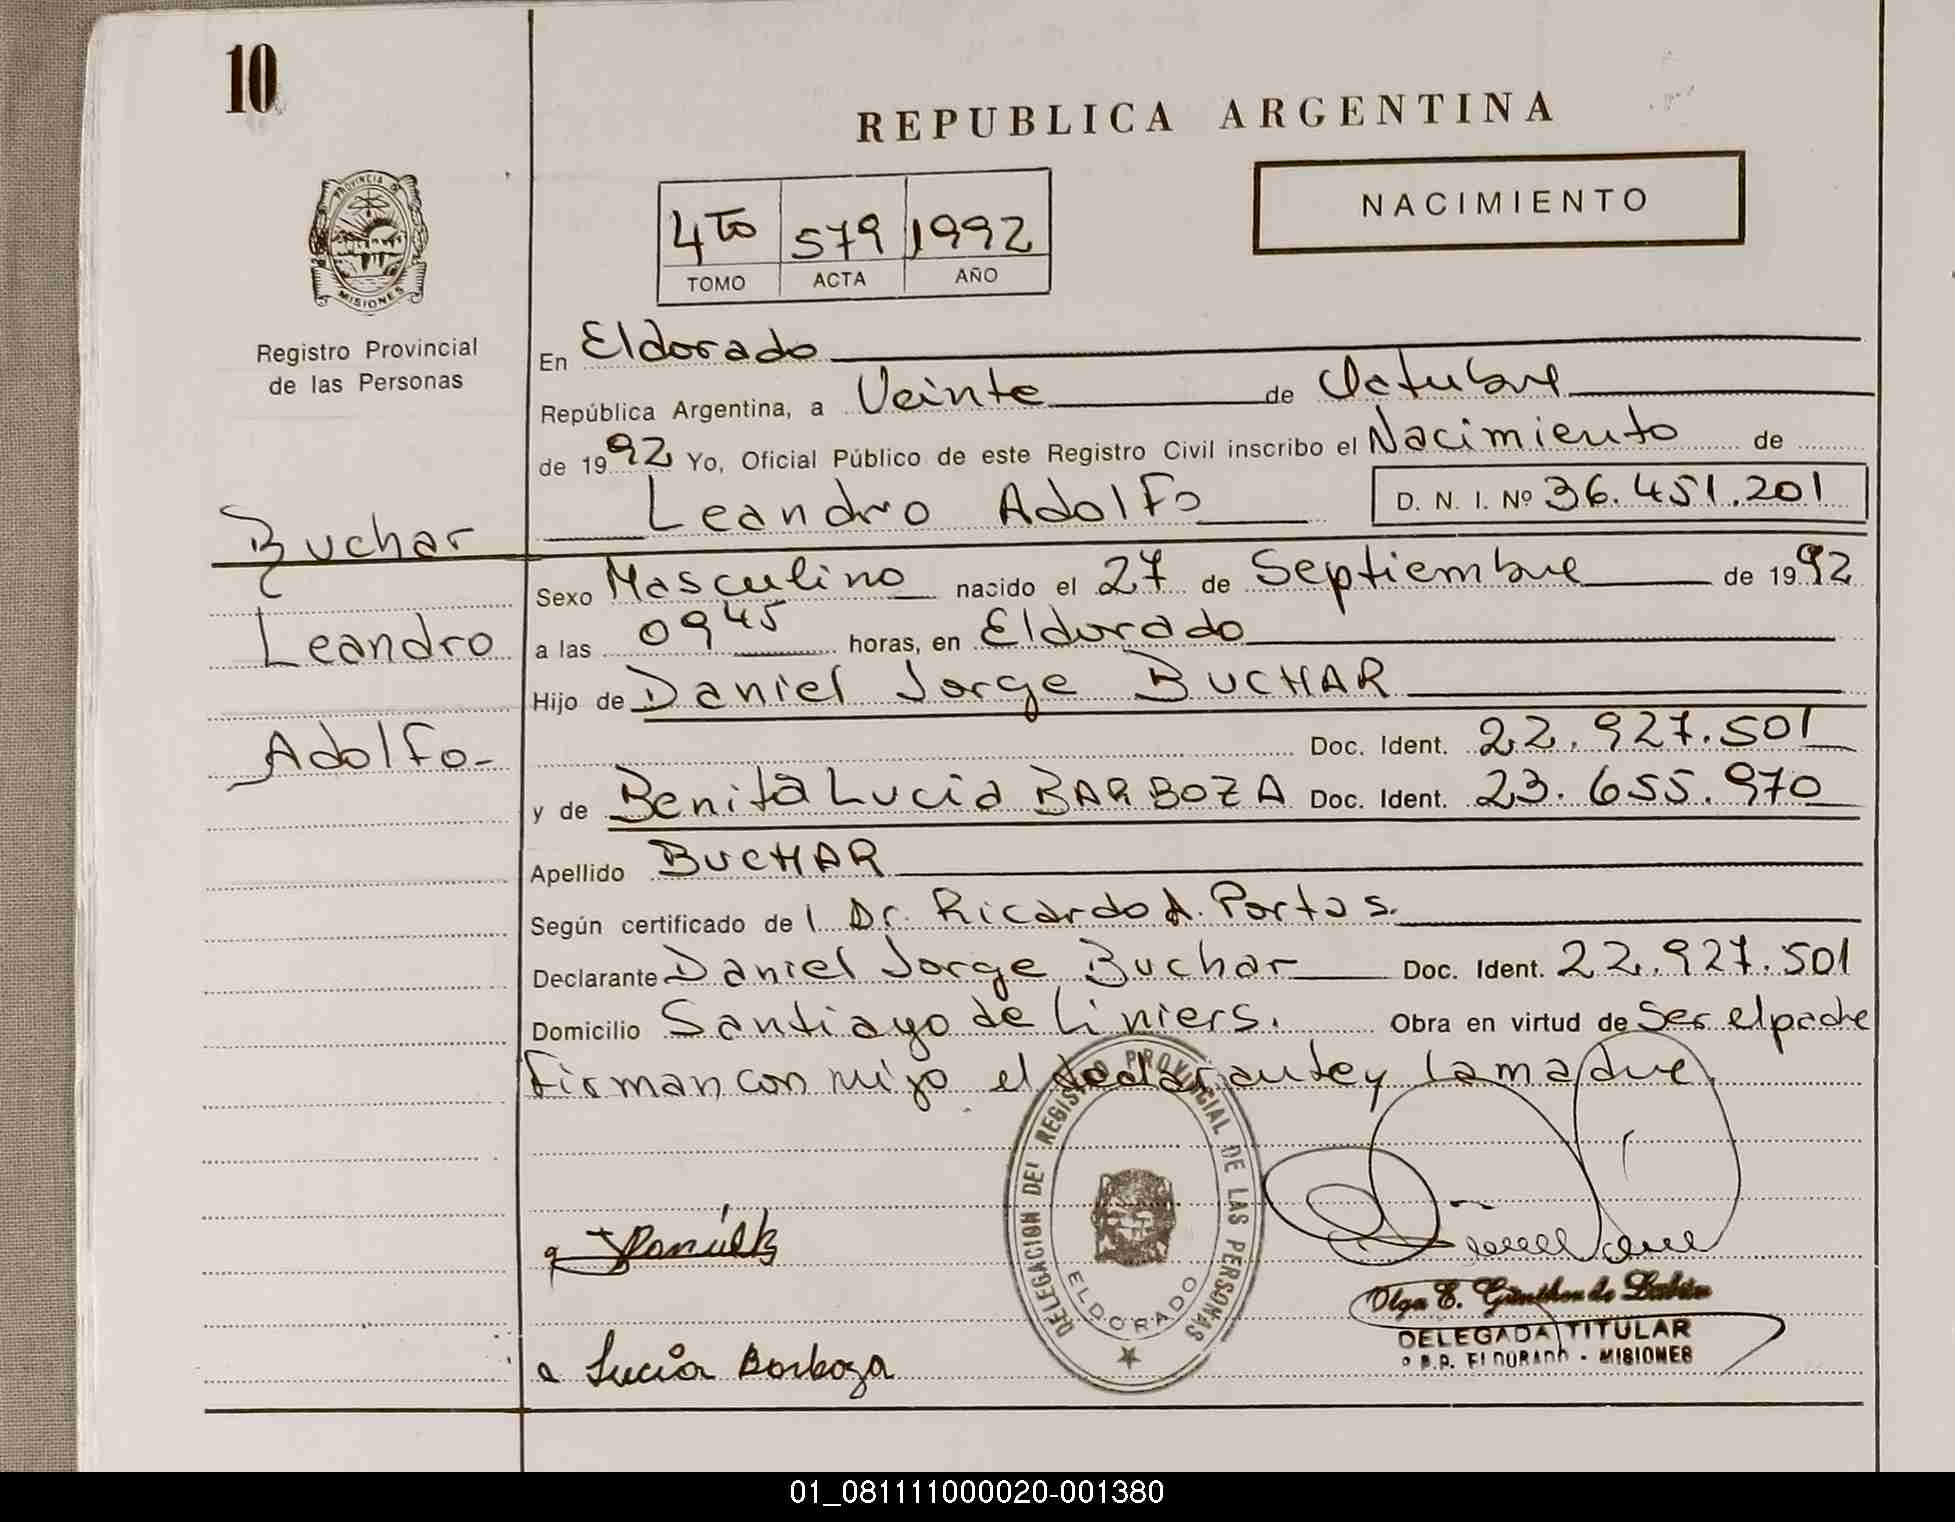 10
REPUBLICA ARGENTINA
NACIMIENTO
4to 579 1992
TOMO ACTA AÑO
PROVINCIA DE
MISIONES
Registro Provincial
de las Personas
En Eldorado
República Argentina, a Veinte de Octubre
de 1992 Yo, Oficial Público de este Registro Civil inscribo el Nacimiento de
Leandro Adolfo D. N. I. Nº 36.451.201
Buchar
Leandro
Adolfo-
Sexo Masculino nacido el 27 de Septiembre de 1992
a las 09 45 horas, en Eldorado
Hijo de Daniel Jorge BUCHAR
Doc. Ident. 22.927.501
y de Benita Lucia BARBOZA Doc. Ident. 23.655.970
Apellido BUCHAR
Según certificado de l Dr. Ricardo A. Portas.
Declarante Daniel Jorge Buchar Doc. Ident. 22.927.501
Domicilio Santiago de Liniers. Obra en virtud de Ser el padre
Firman con migo el declarante y la madre.
DELEGACION DEL REGISTRO PROVINCIAL DE LAS PERSONAS
ELDORADO
Olga E.
DELEGADA TITULAR
R.P. ELDORADO - MISIONES
a Lucia Barboza
01_081111000020-001380